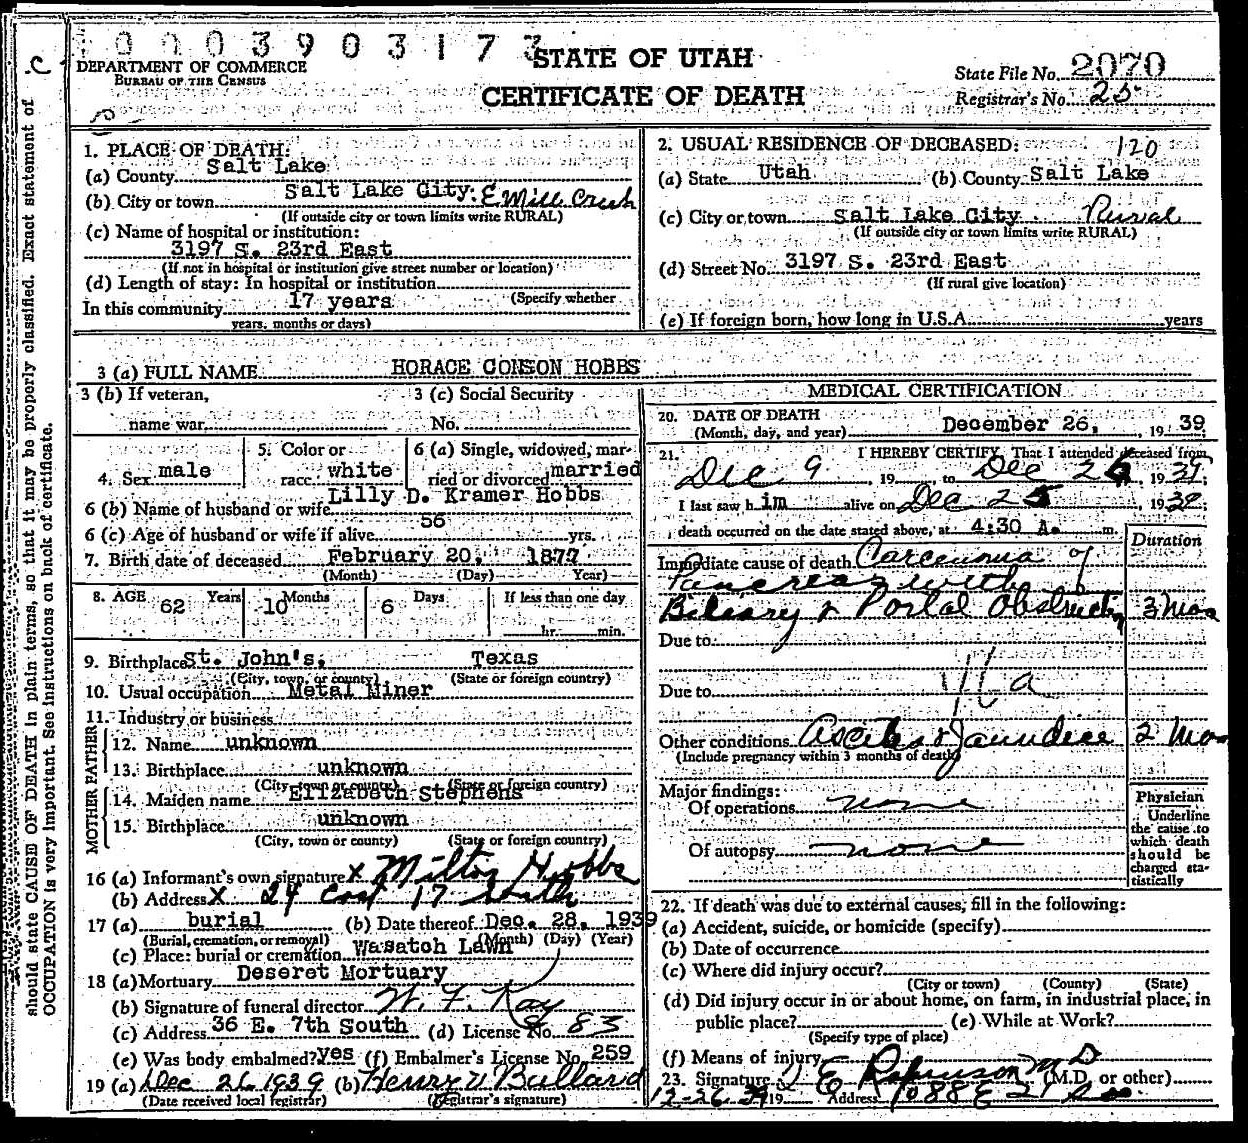 0 0 0 3 9 0 3 1 7 3
DEPARTMENT OF COMMERCE
BUREAU OF THE CENSUS
STATE OF UTAH
CERTIFICATE OF DEATH
State File No. 2070
Registrar's No. 25
should state CAUSE OF DEATH in plain terms, so that it may be properly classified. Exact statement of
OCCUPATION is very important. See instructions on back of certificate.
1. PLACE OF DEATH:
(a) County Salt Lake
(b) City or town Salt Lake City. E Mill Creek
(If outside city or town limits write RURAL)
(c) Name of hospital or institution:
3197 S. 23rd East
(If not in hospital or institution give street number or location)
(d) Length of stay: In hospital or institution
(Specify whether
In this community 17 years
years, months or days)
2. USUAL RESIDENCE OF DECEASED: 120
(a) State Utah (b) County Salt Lake
(c) City or town Salt Lake City. Rural
(If outside city or town limits write RURAL)
(d) Street No. 3197 S. 23rd East
(If rural give location)
(e) If foreign born, how long in U.S.A. years
3 (a) FULL NAME HORACE CONSON HOBBS
3 (b) If veteran, 3 (c) Social Security
name war No.
4. Sex male 5. Color or race white 6 (a) Single, widowed, married or divorced married
6 (b) Name of husband or wife Lilly D. Kramer Hobbs
6 (c) Age of husband or wife if alive 56 yrs.
7. Birth date of deceased February 20, 1877
(Month) (Day) Year)
8. AGE 62 Years 10 Months 6 Days If less than one day
hr. min.
9. Birthplace St. John's, Texas
(City, town, or county) (State or foreign country)
10. Usual occupation Metal Miner
11. Industry or business
FATHER
12. Name unknown
13. Birthplace unknown
(City, town or county) (State or foreign country)
MOTHER
14. Maiden name Elizabeth Stephens
15. Birthplace unknown
(City, town or county) (State or foreign country)
16 (a) Informant's own signature X Milton Hobbs
(b) Address X 24 East 17 South
17 (a) burial (b) Date thereof Dec. 28, 1939
(Burial, cremation, or removal) (Month) (Day) (Year)
(c) Place: burial or cremation Wasatch Lawn
18 (a) Mortuary Deseret Mortuary
(b) Signature of funeral director W. F. Kay
(c) Address 36 E. 7th South (d) License No. 83
(e) Was body embalmed? yes (f) Embalmer's License No. 259
19 (a) Dec 26 1939 (b) Henry W Bullard
(Date received local registrar) (Registrar's signature)
MEDICAL CERTIFICATION
20. DATE OF DEATH
(Month, day, and year) December 26, 1939
21. I HEREBY CERTIFY, That I attended deceased from
Dec 9, 19 to Dec 26, 1939;
I last saw him alive on Dec 25, 1939;
death occurred on the date stated above, at 4:30 A. m.
Duration
Immediate cause of death Carcinoma of
Pancreas with
Biliary & Portal Obstruction 3 mos
Due to
Due to
Other conditions Ascites & Jaundice 2 Mos
(Include pregnancy within 3 months of death)
Major findings:
Of operations none
Of autopsy none
Physician
Underline
the cause to
which death
should be
charged sta-
tistically
22. If death was due to external causes, fill in the following:
(a) Accident, suicide, or homicide (specify)
(b) Date of occurrence
(c) Where did injury occur?
(City or town) (County) (State)
(d) Did injury occur in or about home, on farm, in industrial place, in
public place? (e) While at Work?
(Specify type of place)
(f) Means of injury
23. Signature E Robinson MD (M.D. or other)
12-26-39 19 Address 1088 E 21 So.